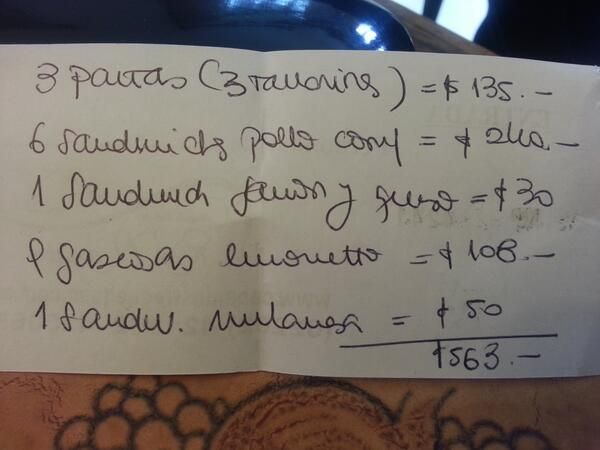 3 pastas (3 tallarines) = $ 135.-
6 Sandwichs pollo = $ 240.-
1 Sandwich jamon y queso = $30
9 gaseosas limonetto = $ 108.-
1 Sandw. milanesa = $ 50
$563.-